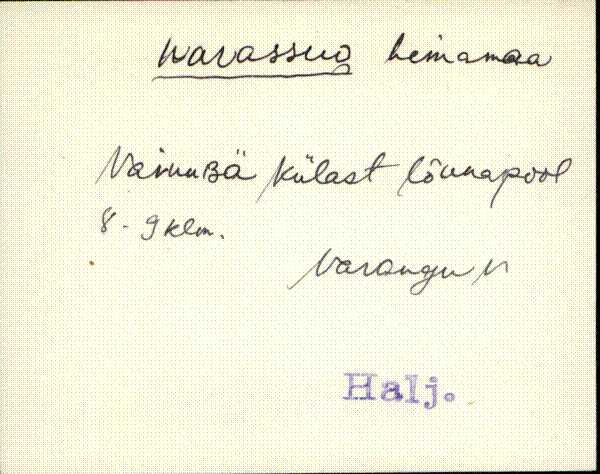 Karassuo heinamaa
Vainuʙä külast lõunapool
8-9 klm.
Varangu v
Halj.